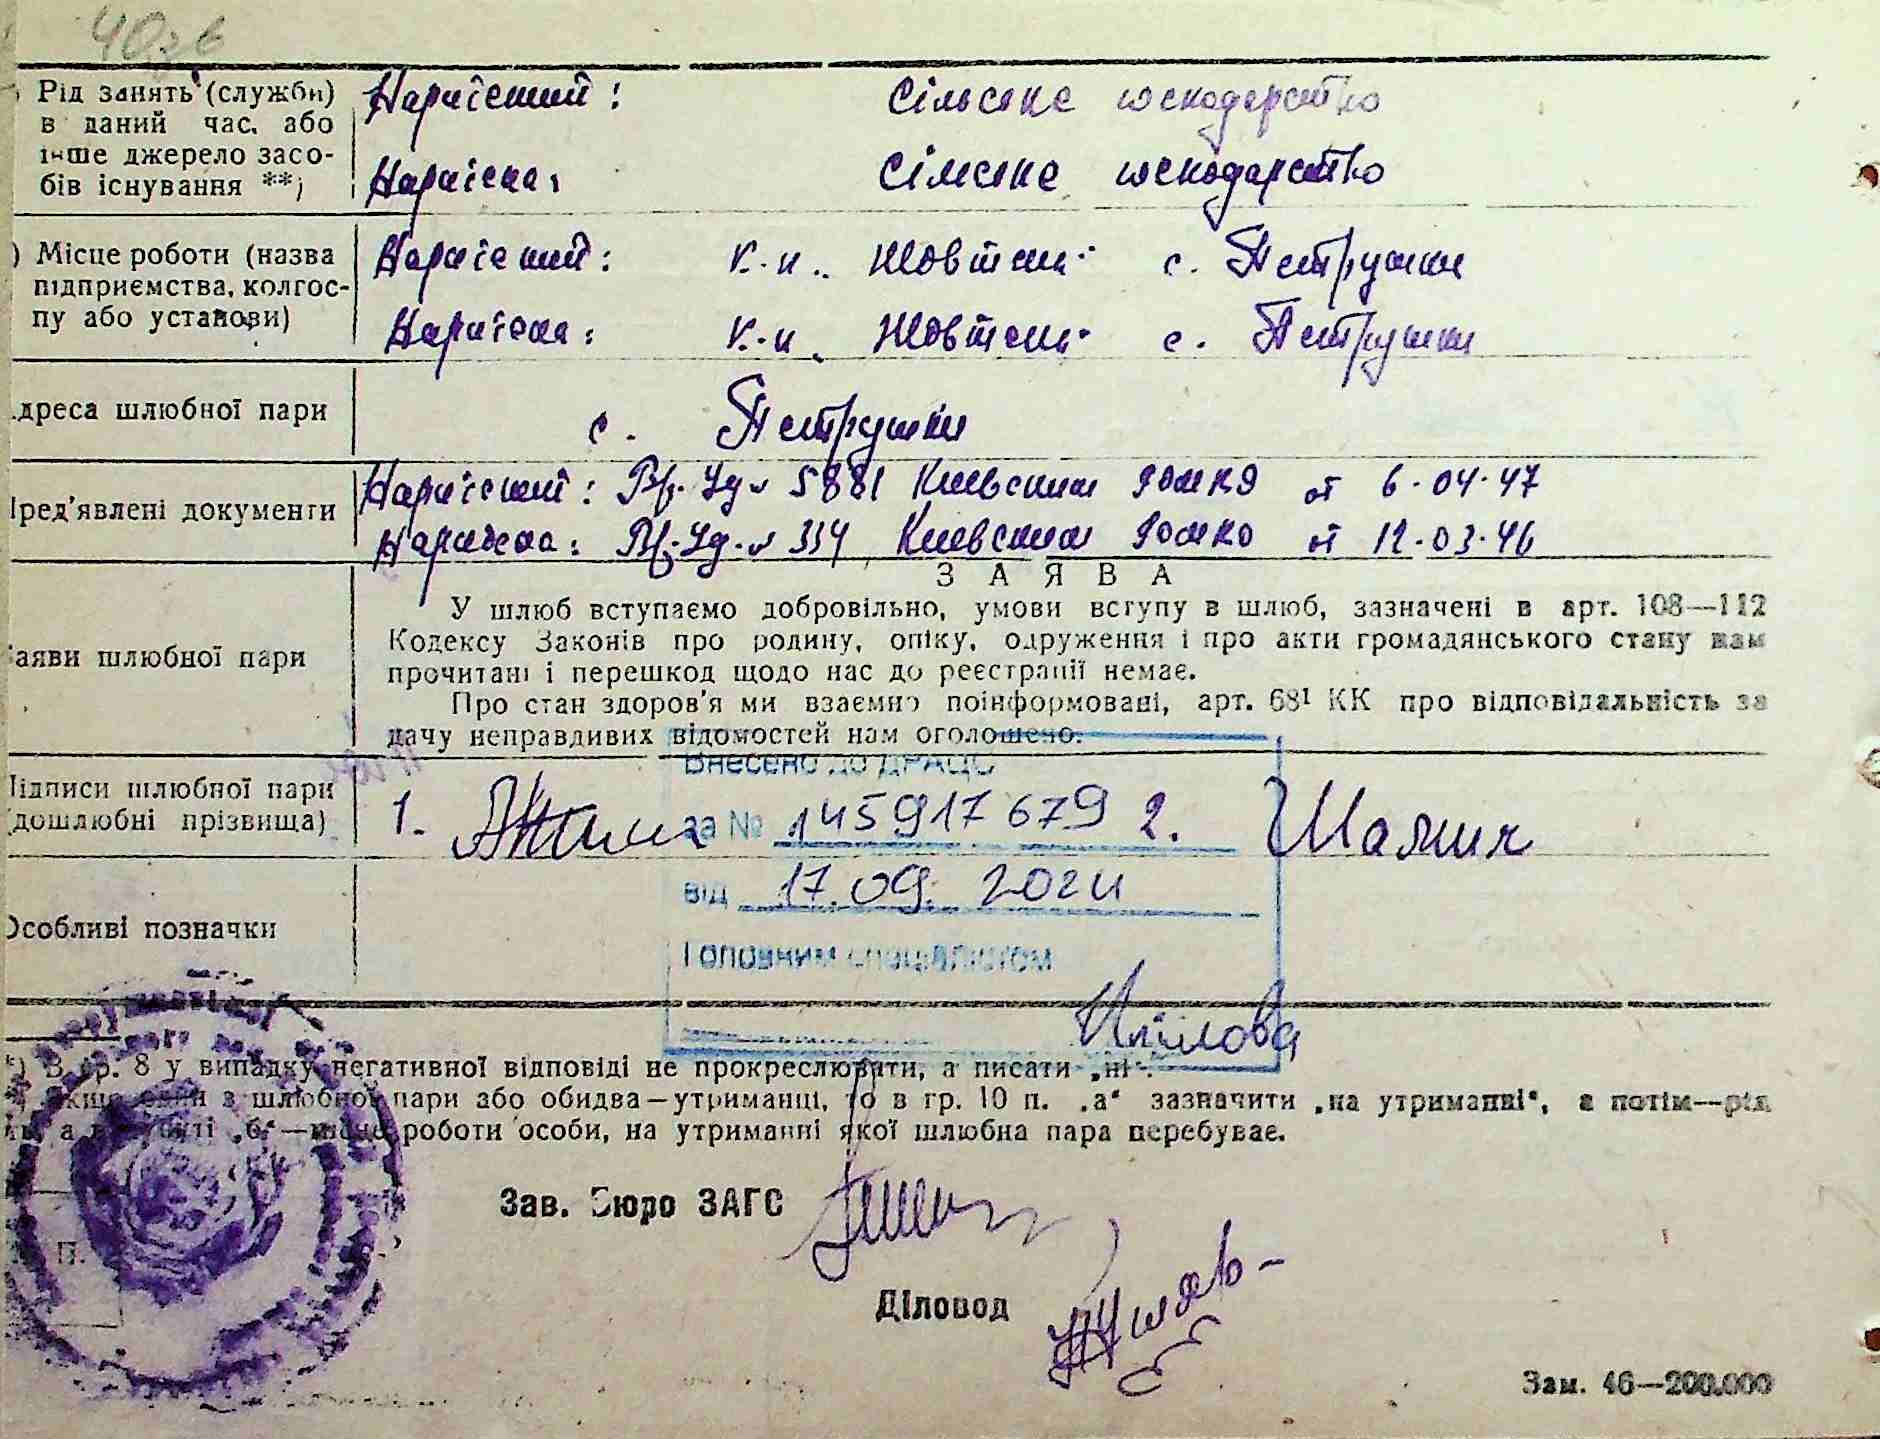 Рід занять (служби) в даний час, або інше джерело засобів існування **)
Наречений: Сільське господарство
Наречена: Сільске господарство
) Місце роботи (назва підприємства, колгоспу або установи)
Наречений: К-п. Жовтень с. Петрушки
Наречена: К-п. Жовтень с. Петрушки
дреса шлюбної пари
с. Петрушки
ред'явлені документи
Наречений: 5881 Киевским от 6.04.47
Наречена: 334 Киевским от 12.03.46
аяви шлюбної пари
ЗАЯВА
У шлюб вступаємо добровільно, умови вступу в шлюб, зазначені в арт. 108—112
Кодексу Законів про родину, опіку, одруження і про акти громадянського стану нам
прочитані і перешкод щодо нас до реєстрації немає.
Про стан здоров'я ми взаємно поінформовані, арт. 68¹ КК про відповідальність за
дачу неправдивих відомостей нам оголошено.
ідписи шлюбної пари
(дошлюбні прізвища)
1. 2.
Внесено до ДРАЦС
за № 145917679
від 17.09.2024
Головним спеціалістом
собливі позначки
*) В гр. 8 у випадку негативної відповіді не прокреслювати, а писати „ні".
якщо один з шлюбної пари або обидва—утриманці, то в гр. 10 п. „а" зазначити „на утриманні", а потім—рід
а в пункті „б"—місце роботи особи, на утриманні якої шлюбна пара перебуває.
Зав. Бюро ЗАГС
П.
Діловод
Зам. 46—200.000